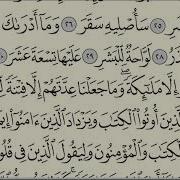 ـشَرِ ٢٥ سَأُصْلِيهِ سَقَرَ ٢٦ وَمَآ أَدْرَىٰكَ
ـذَرُ ٢٨ لَوَّاحَةٌ لِّلْبَشَرِ ٢٩ عَلَيْهَا تِسْعَةَ عَشَرَ
إِلَّا مَلَٰٓئِكَةً وَمَا جَعَلْنَا عِدَّتَهُمْ إِلَّا فِتْنَةً
ـذِينَ أُوتُوا۟ ٱلْكِتَٰبَ وَيَزْدَادَ ٱلَّذِينَ ءَامَنُوٓا۟
ٱلْكِتَٰبَ وَٱلْمُؤْمِنُونَ وَلِيَقُولَ ٱلَّذِينَ فِى قُلُو